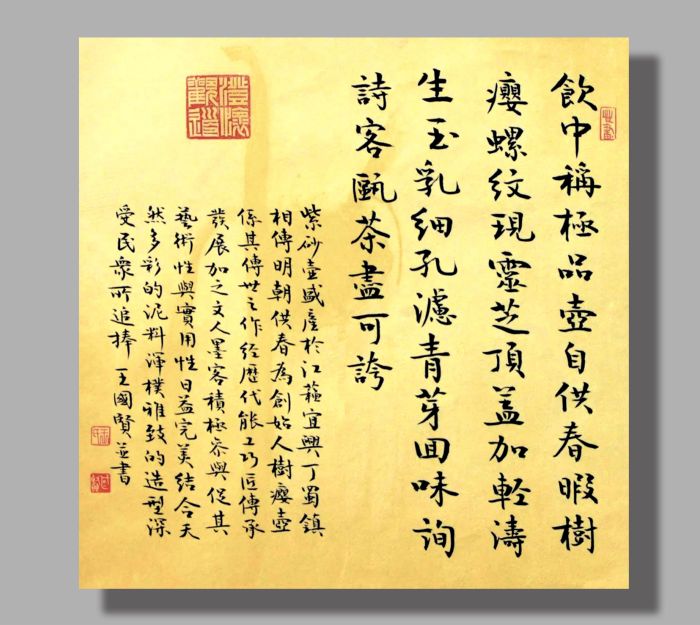 飲中稱極品壺自供春暇樹
癭螺紋現靈芝頂蓋加輕濤
生玉乳細孔濾青芽回味詢
詩客甌茶盡可誇
澄懷觀道
紫砂壺盛産於江蘇宜興丁蜀鎮
相傳明朝供春為創始人樹癭壺
係其傳世之作經歷代能工巧匠傳承
發展加之文人墨客積極參與促其
藝術性與實用性日益完美結合天
然多彩的泥料渾樸雅致的造型深
受民衆所追捧 王國賢並書